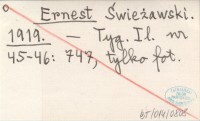 Ernest Świeżawski.
1919. — Tyg. Il. nr
45-46: 747, tylko fot.